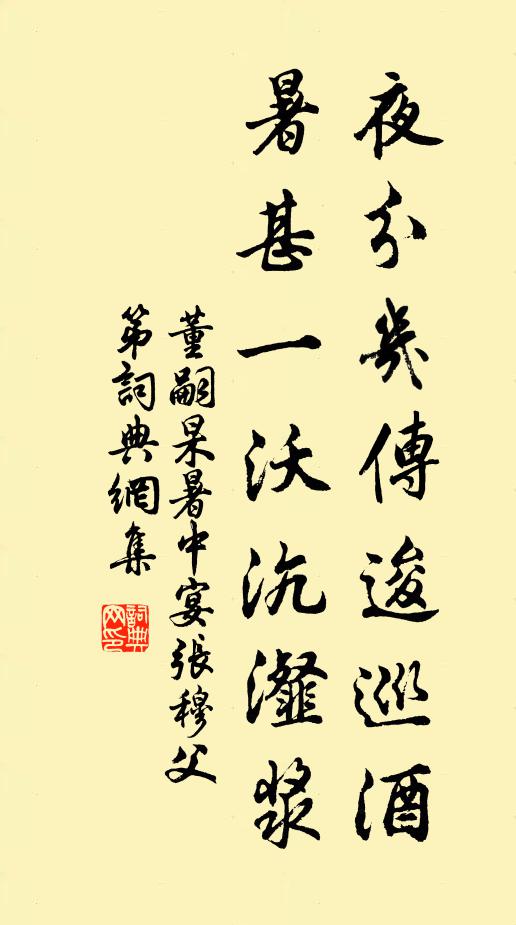 夜分幾傳逡巡酒
暑甚一沃沆瀣漿
董嗣杲暑中宴張穆父
第詞典網集
詞典
网印